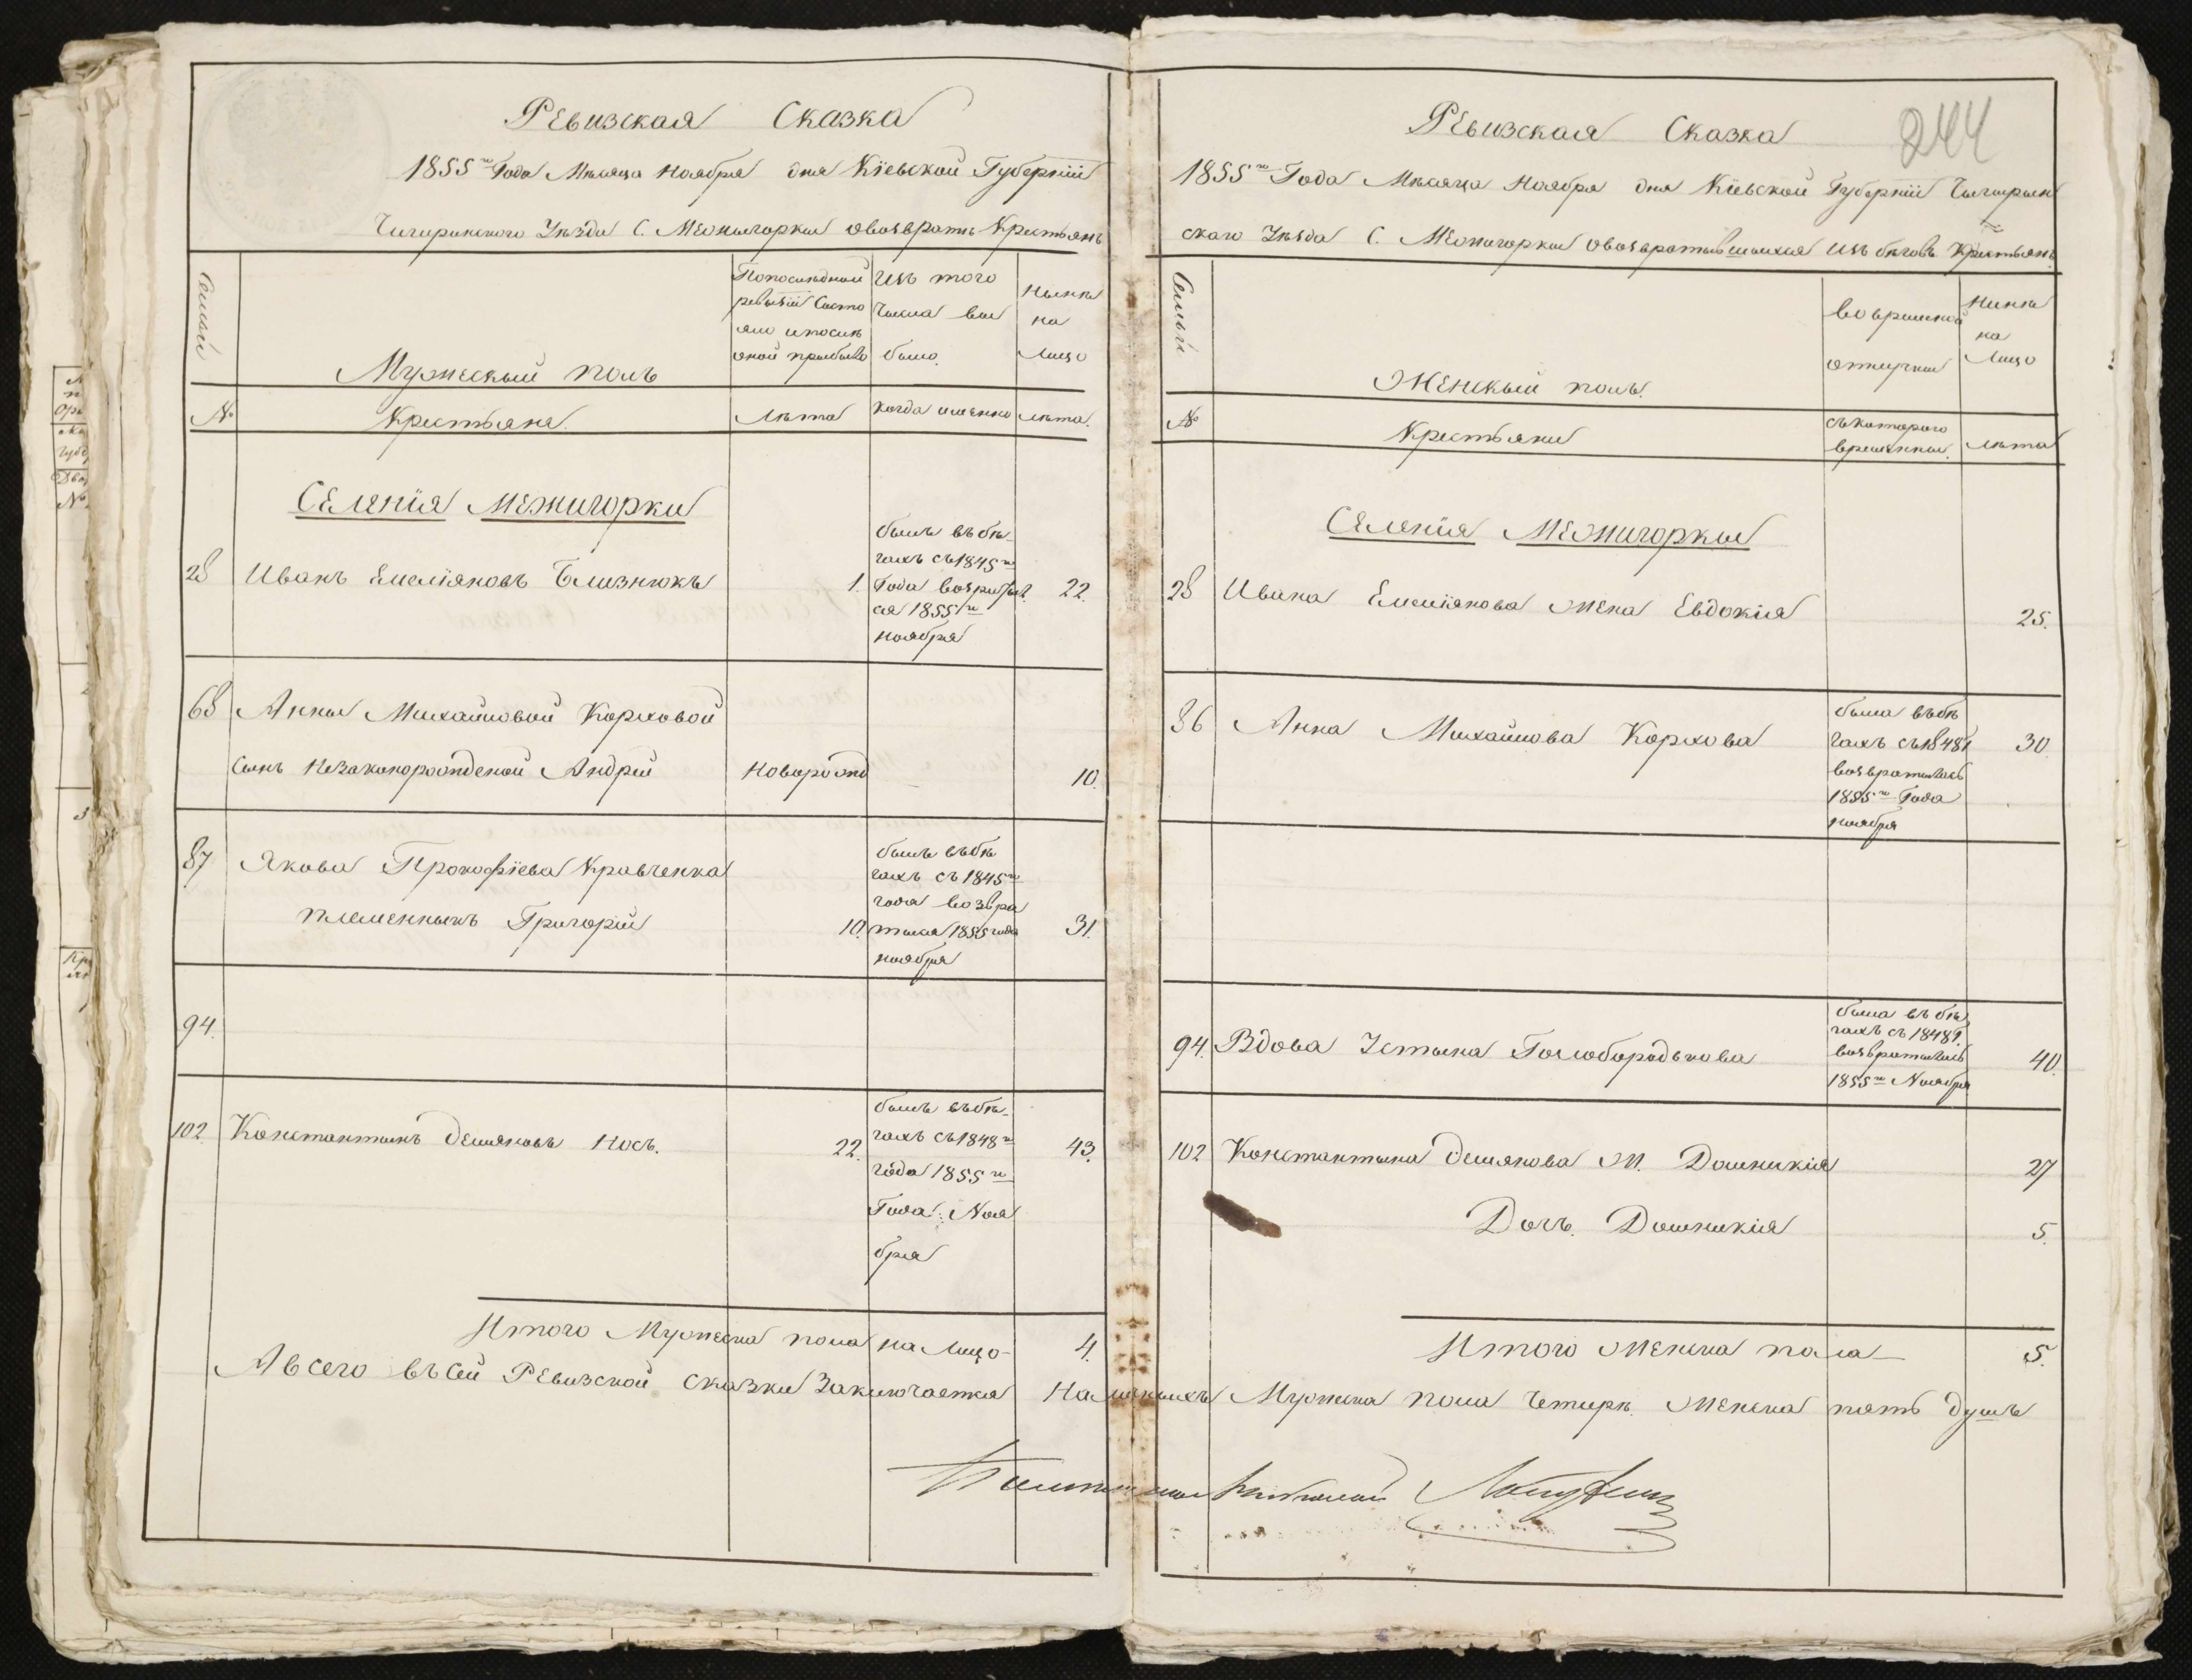 Ревизская Сказка
1855го Года Мѣсяца Ноября дня Кіевской Губерніи
Чигиринского Уѣзда С. Межигорки овозвратѣ Крестьянъ
Семьи
Мужеский полъ
Попослѣдней
ревизіи Состо
яло ипослѣ
оной прибыло
Изъ того
Числа вы
было
Нынѣ
на
Лицо
№
Крестьяне
Лѣта
когда именно
Лѣта.
Селенія Межигорки
28
Иванъ Емеліяновъ Близнюкъ
1.
былъ въбѣ
гахъ съ1845го
Года возвратил
ся 1855го
ноября
22.
68
Анны Михайловой Корховой
сынъ незаконорожденой Андрій
новорожд
10.
87
Якова Прокофіева Кравченка
племенныкъ Григорій
10.
былъ въбѣ
гахъ съ 1845го
года возвра
тился 1855 года
ноября
31.
94.
102
Константинъ Демяновъ Носъ.
22.
былъ въбѣ
гахъ съ1848го
года 1855го
Года Ноя
бря
43.
Итого Мужеска пола на Лицо
4.
244
Ревизская Сказка
1855го Года Мѣсяца Ноября дня Кіевской Губерніи Чигирин
скаго Уѣзда С. Межигорки овозвратившихся изъ бѣговъ Крестьянъ
Семьи
Женский полъ.
Во временной
отлучки
Нинѣ
на
Лицо
№
Крестьяни
съкоторого
времѣнны.
лѣта
Селенія Межигорки
28
Ивана Емеліянова жена Евдокія
25.
86
Анна Михайлова Корхова
была въбѣ
гахъ съ1848г
возвратилась
1855го Года
ноября
30
94.
Вдова Устына Голобородькова
была въ бѣ
гахъ съ 1848г.
возвратилась
1855го Ноября
40.
102
Константина Демянова ж. Домникія
27
Дочь Домникія
5.
Итого женска пола
5.
А всего въ сей Ревизской сказки Заключается Наличныхъ Мужеска пола Четирѣ Женска пять душъ